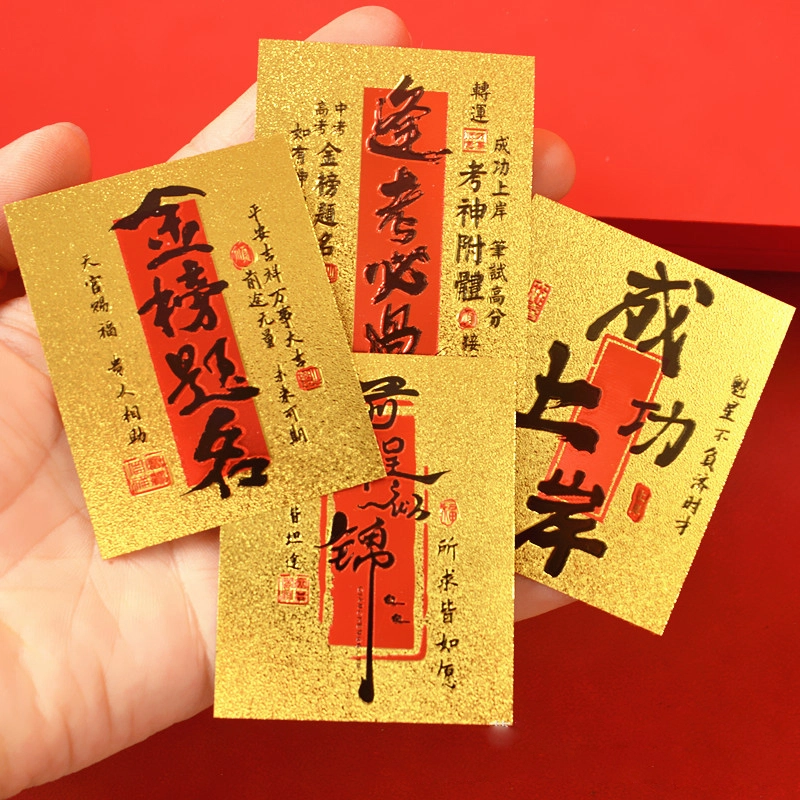 金榜题名
平安吉祥万事大吉
前途无量 未来可期
天官赐福 贵人相助
逢考必過
轉運
成功上岸 筆試高分
考神附體
中考
高考
金榜題名
如有神
前程似锦
所求皆如愿
皆坦途
成功
上岸
魁星不负济时才